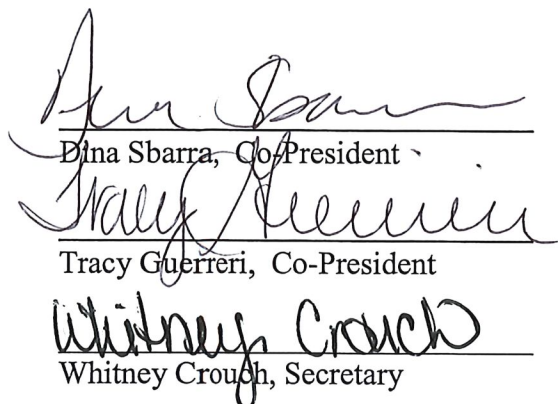 Dina Sbarra
Dina Sbarra, Co-President
Tracy Guerreri
Tracy Guerreri, Co-President
Whitney Crouch
Whitney Crouch, Secretary